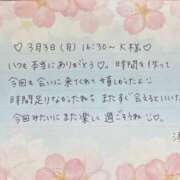 ♡ 3月3日(月) 16:30〜 K様 ♡
いつも本当にありがとう♡。時間を作って
今回も会いに来てくれて嬉しかったよ
時間足りなかったねっ またすぐ会えるといいな
今回みたいにまた楽しく過ごそうね